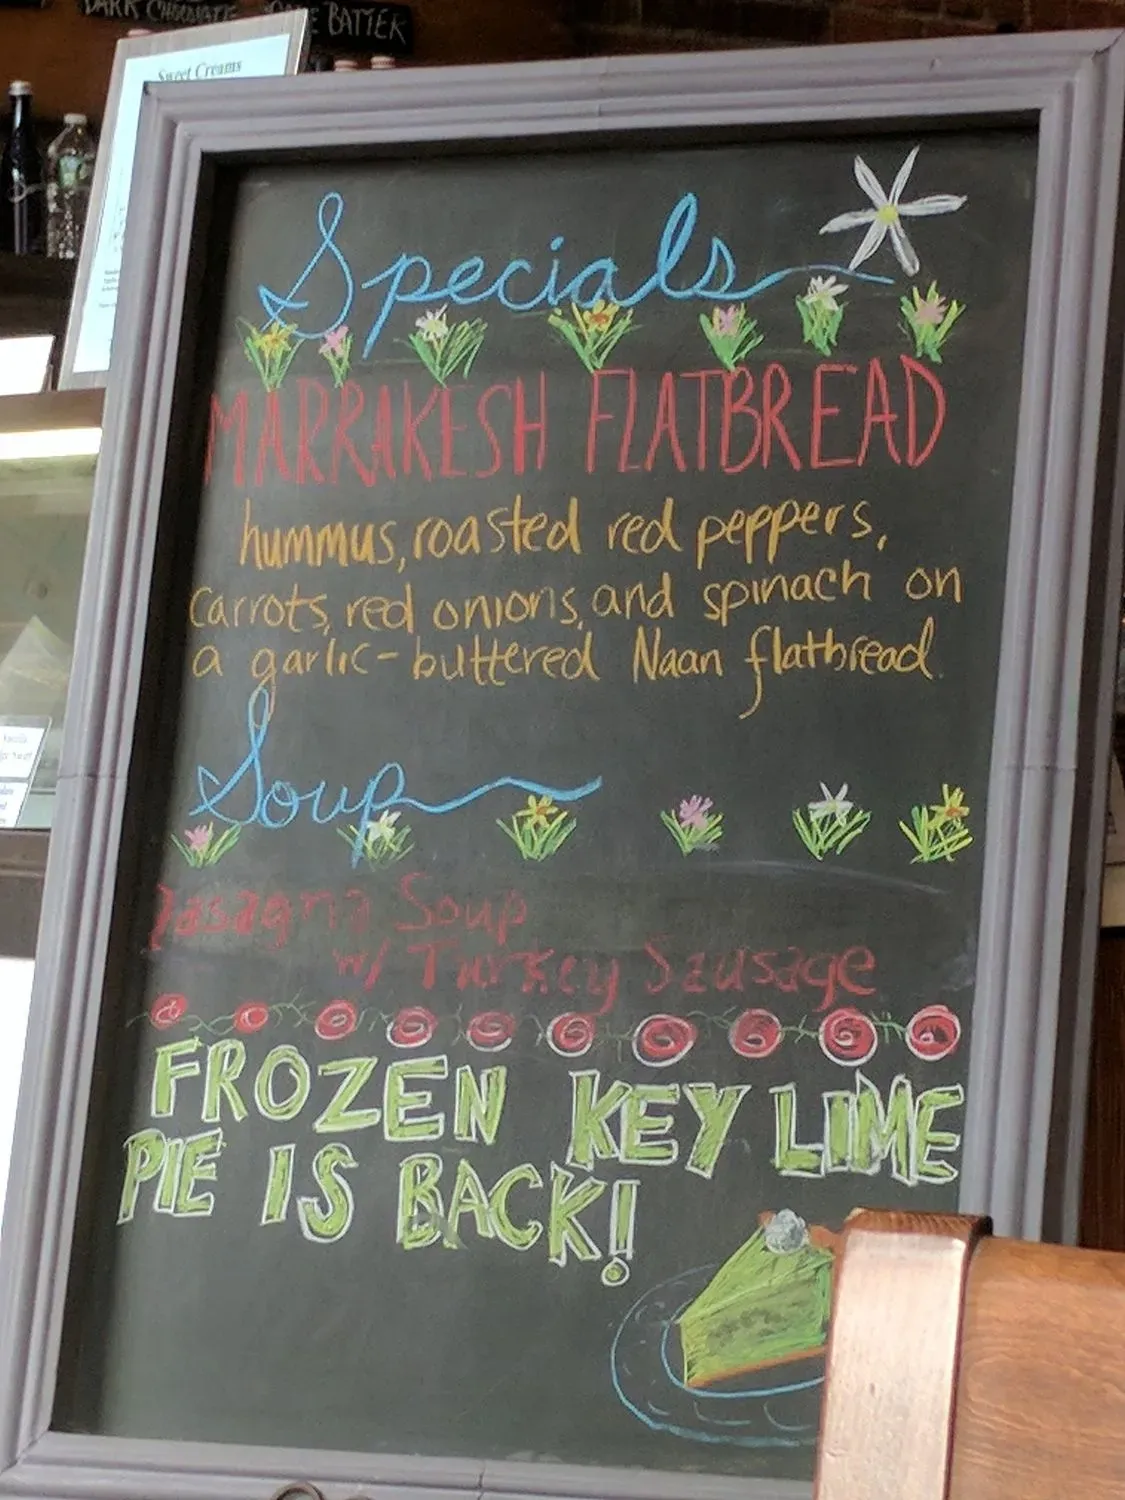 DARK CHOCOLATE
BATTER
Sweet Creams
Specials
MARRAKESH FLATBREAD
hummus, roasted red peppers,
carrots, red onions, and spinach on
a garlic-buttered Naan flatbread
Soup
Lasagna Soup
w/ Turkey Sausage
FROZEN KEY LIME
PIE IS BACK!